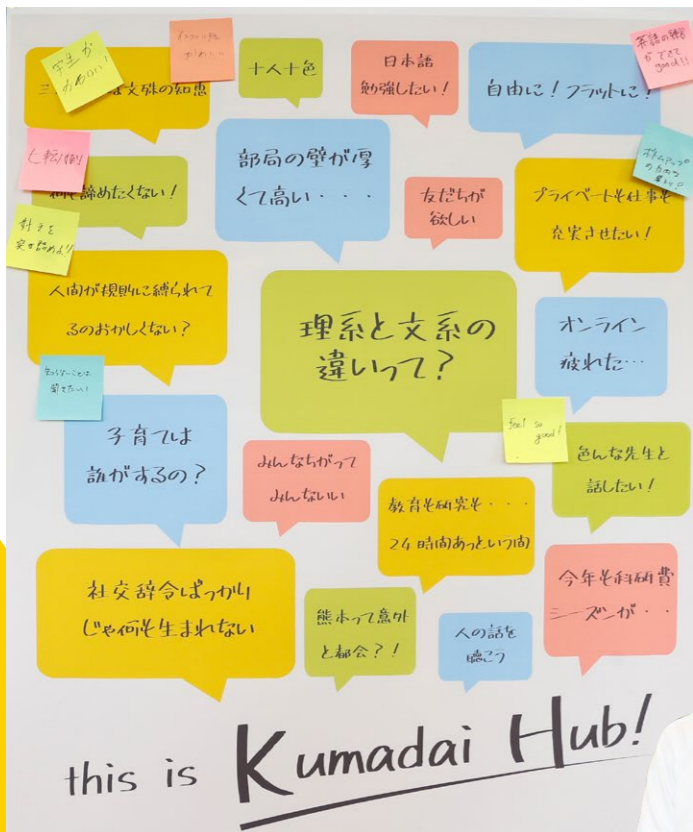 学生が
三
は文殊の知恵
十人十色
日本語
勉強したい！
自由に！フラットに！
英語の練習
ができて
good!!
七転八倒！
も諦めたくない！
部局の壁が厚
くて高い・・・
友だちが
欲しい
プライベートも仕事も
充実させたい！
人間が規則に縛られて
るのおかしくない？
理系と文系の
違いって？
オンライン
疲れた…
子育ては
誰がするの？
みんなちがって
みんないい
feel so
good!
色んな先生と
話したい！
教育も研究も・・・
24時間あっという間
社交辞令ばっかり
じゃ何も生まれない
熊本って意外
と都会？！
人の話を
聴こう
今年も科研費
シーズンが・・
this is Kumadai Hub!